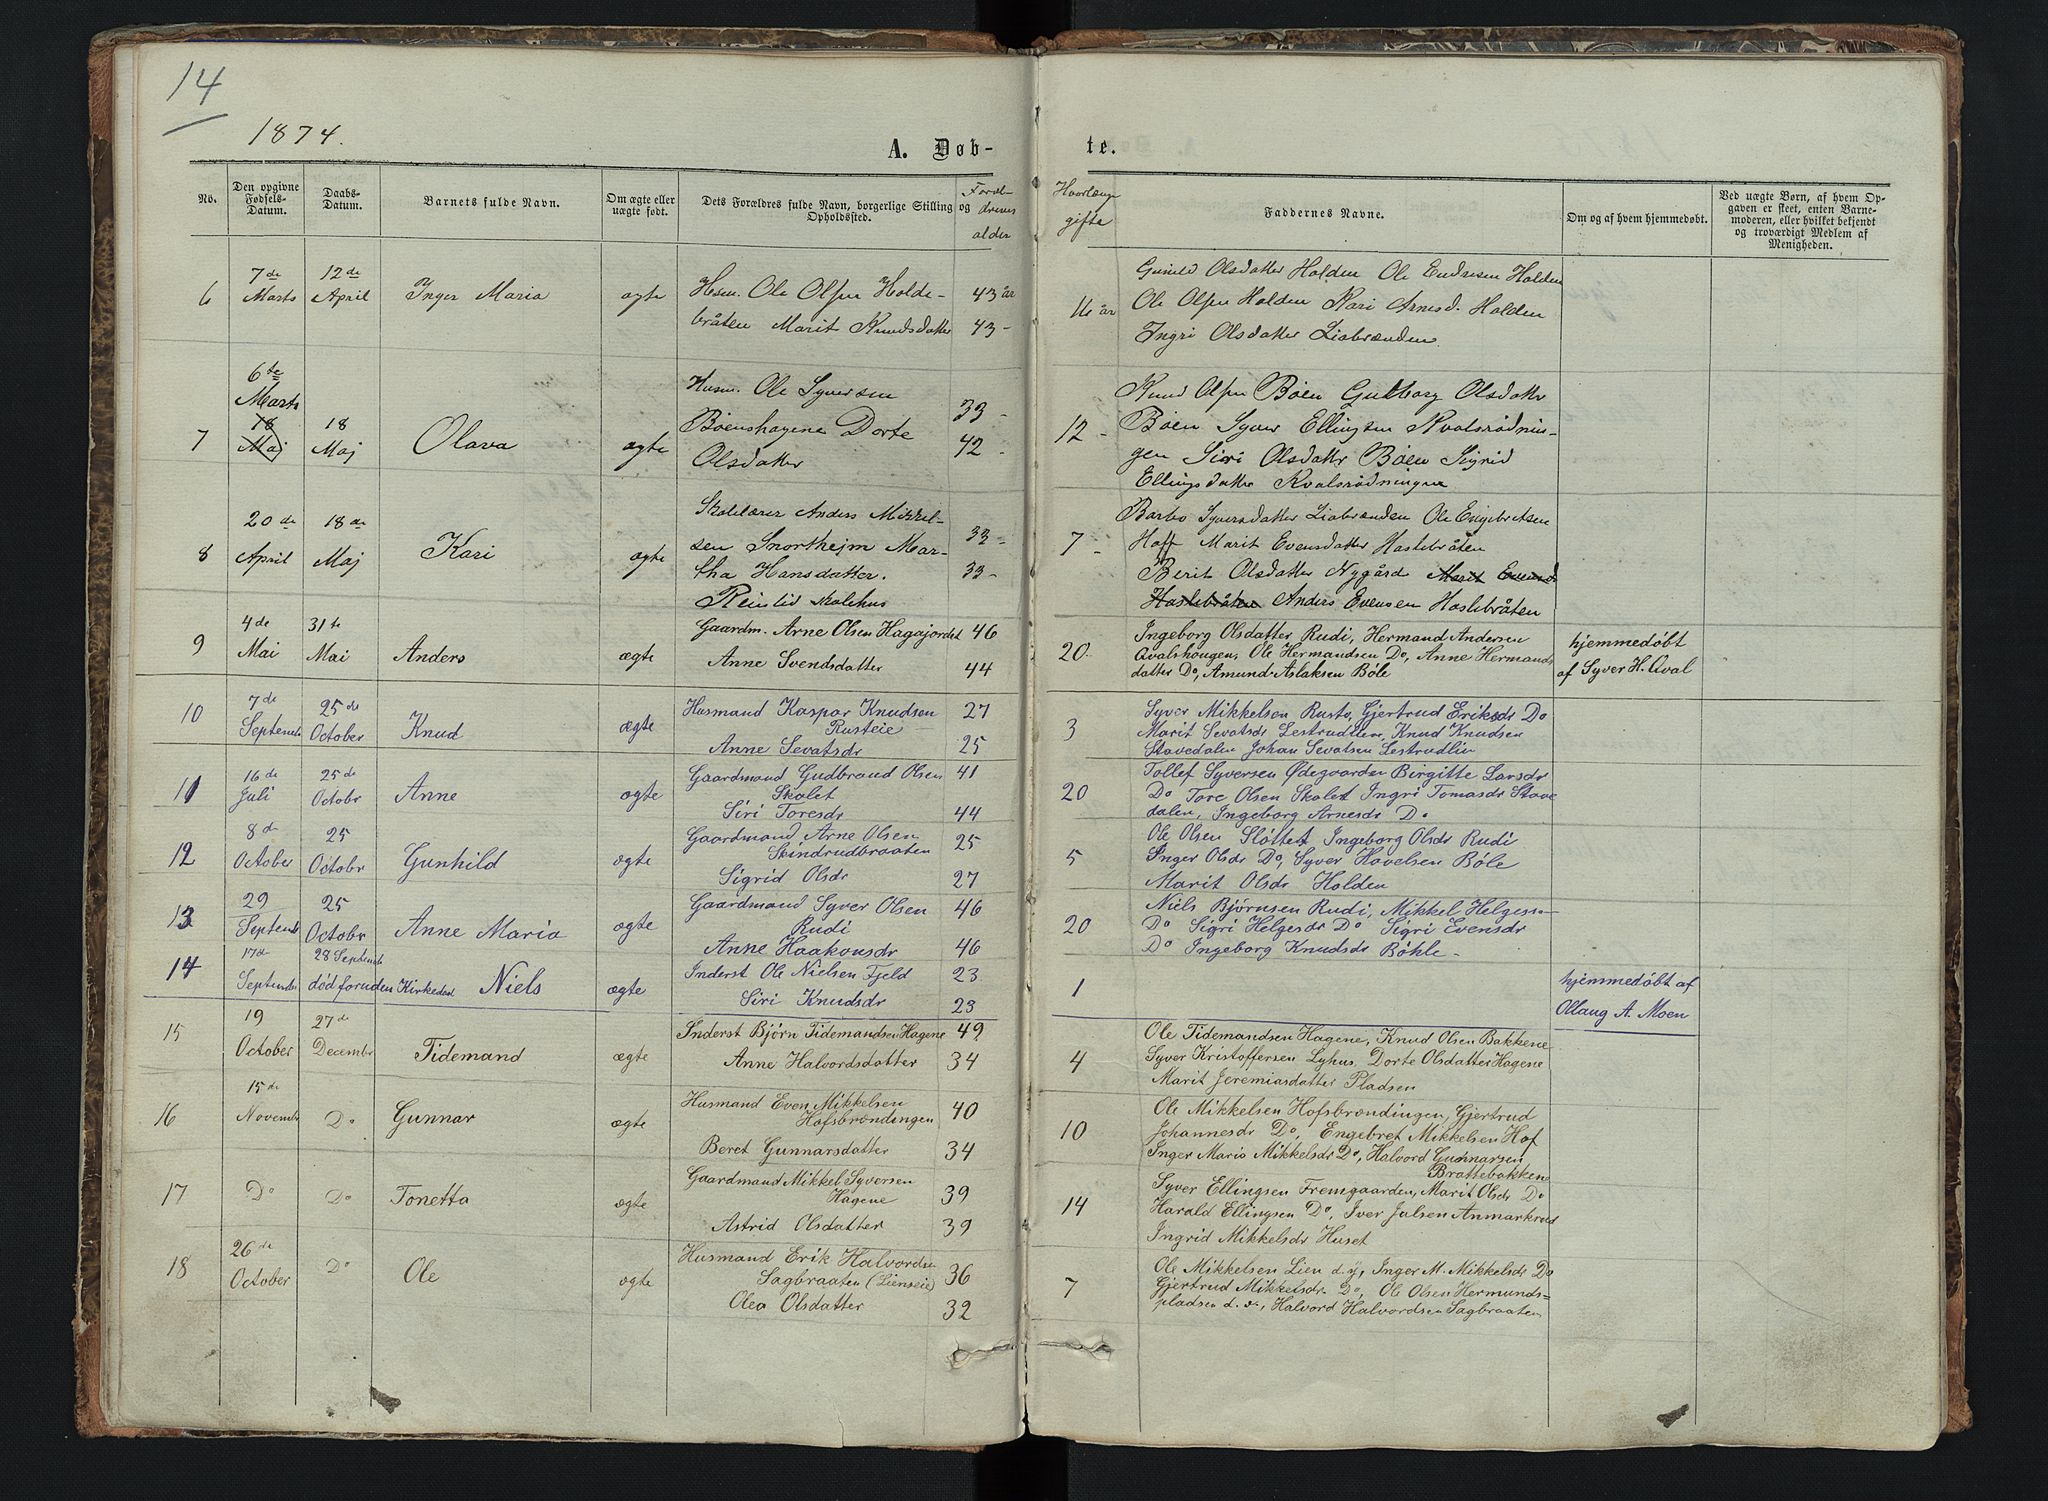 14
1874.
A. Døb-
te.
No.
Den opgivne Fødsels-Datum.
Daabs-Datum.
Barnets fulde Navn.
Om ægte eller uægte født.
Dets Forældres fulde Navn, borgerlige Stilling og Opholdssted.
Foræl-
drenes
alder
Hvorlænge
gifte
Faddernes Navne.
Om og af hvem hjemmedøbt.
Ved uægte Børn, af hvem Op-
gaven er skeet, enten Barne-
moderen, eller hvilket bekjendt
og troværdigt Medlem af
Menigheden.
6
7de Marts
12de April
Inger Maria
ægte
Husm. Ole Olsen Holde-
bråten Marit Knudsdatter
43 år
43 -
16 år
Gunild Olsdatter Holden Ole Endresen Holden
Ole Olsen Holden Kari Arnesd. Holden
Ingri Olsdatter Liabrænden
7
6te Marts
18 Maj
18 Maj
Olava
ægte
Husm. Ole Syversen
Bøenshagene Dorte
Olsdatter
33 -
42 -
12 -
Knud Olsen Bøen Gulborg Olsdatter
Bøen Syver Ellingsen Kvalsrødnin-
gen Siri Olsdattr Bøen Sigrid
Ellingsdatter Kvalsrødningne
8
20de April
18de Maj
Kari
ægte
Skolelærer Anders Mikkel-
sen Snortheim Mar-
tha Hansdatter.
Reinlid skolehus
33 -
33 -
7 -
Barbo Syversdatter Liabrænden Ole Engebretsen
Hoff Marit Evensdatter Haslebråten
Berit Olsdatter Nygård Marit Evensd
Haslebråten Anders Evensen Haslebråten
9
4de Mai
31te Mai
Anders
ægte
Gaardm. Arne Olsen Hagajordet
Anne Svendsdatter
46
44
20
Ingeborg Olsdatter Rudi, Hermand Andersen
Qvalshougen, Ole Hermandsen Do, Anne Hermands
datter Do, Amund Aslaksen Bøle
hjemmedøbt
af Syver H. Qval
10
7de Septembr
25de October
Knud
ægte
Husmand Kaspar Knudsen
Rusteie
Anne Sevatsdr
27
25
3
Syver Mikkelsen Rusto, Gjertrud Eriksdr Do
Marit Sevatsdr Lestrudlien, Knud Knudsen
Stavedalen Johan Sevatsen Lestrudlin
11
16de Juli
25de Octobr
Anne
ægte
Gaardmand Gudbrand Olsen
Skolet
Siri Toresdr
41
44
20
Tollef Syversen Ødegaarden Birgitte Larsdr
Do Tore Olsen Skolet Ingri Tomasdr Stave
dalen, Ingeborg Arnesdr Do
12
8de October
25 Octobr
Gunhild
ægte
Gaardmand Arne Olsen
Skindrudbraaten
Sigrid Olsdr
25
27
5
Ole Olsen Sløttet Ingeborg Olsdr Rudi
Inger Olsdr Do, Syver Havelsen Bøle
Marit Olsdr Holden
13
29 Septembr
25 October
Anne Maria
ægte
Gaardmand Syver Olsen
Rudi
Anne Haakonsdr
46
46
20
Niels Bjørnsen Rudi, Mikkel Helgesen
Do Sigri Helgesdr Do Sigri Evensdr
Do Ingeborg Knudsdr Bøhle -
14
17de September
28 Septembr
død foruden Kirkedaab
Niels
ægte
Inderst Ole Nielsen Fjeld
Siri Knudsdr
23
23
1
hjemmedøbt af
Ollaug A. Moen
15
19 October
27de Decembr
Tidemand
ægte
Inderst Bjørn Tidemandsen Hagene
Anne Halvordsdatter
49
34
4
Ole Tidemandsen Hagene, Knud Olsen Bakkene
Syver Kristoffersen Lyhus, Dorte Olsdatter Hagene
Marit Jeremiasdatter Pladsen
16
15de Novembr
Do
Gunnar
ægte
Husmand Even Mikkelsen
Hofsbrændingen
Beret Gunnarsdatter
40
34
10
Ole Mikkelsen Hofsbrændingen, Gjertrud
Johannesdr Do, Engebret Mikkelsen Hof
Inger Maria Mikkelsdr Do, Halvord Gunnarsen
Brattebakken
17
Do
Do
Tonetta
ægte
Gaardmand Mikkel Syversen
Hagene
Astrid Olsdatter
39
39
14
Syver Ellingsen Fremgaarden, Marit Olsdr Do
Harald Ellingsen Do, Iver Julsen Anmarkrud
Ingrid Mikkelsdr Huset
18
26de October
Do
Ole
ægte
Husmand Erik Halvordsen
Sagbraaten (Lienseie)
Olea Olsdatter
36
32
7
Ole Mikkelsen Lien d. y, Inger M. Mikkelsdr Do
Gjertrud Mikkelsdr Do, Ole Olsen Hermunds-
pladsen d. æ., Halvord Halvordsen Sagbraaten